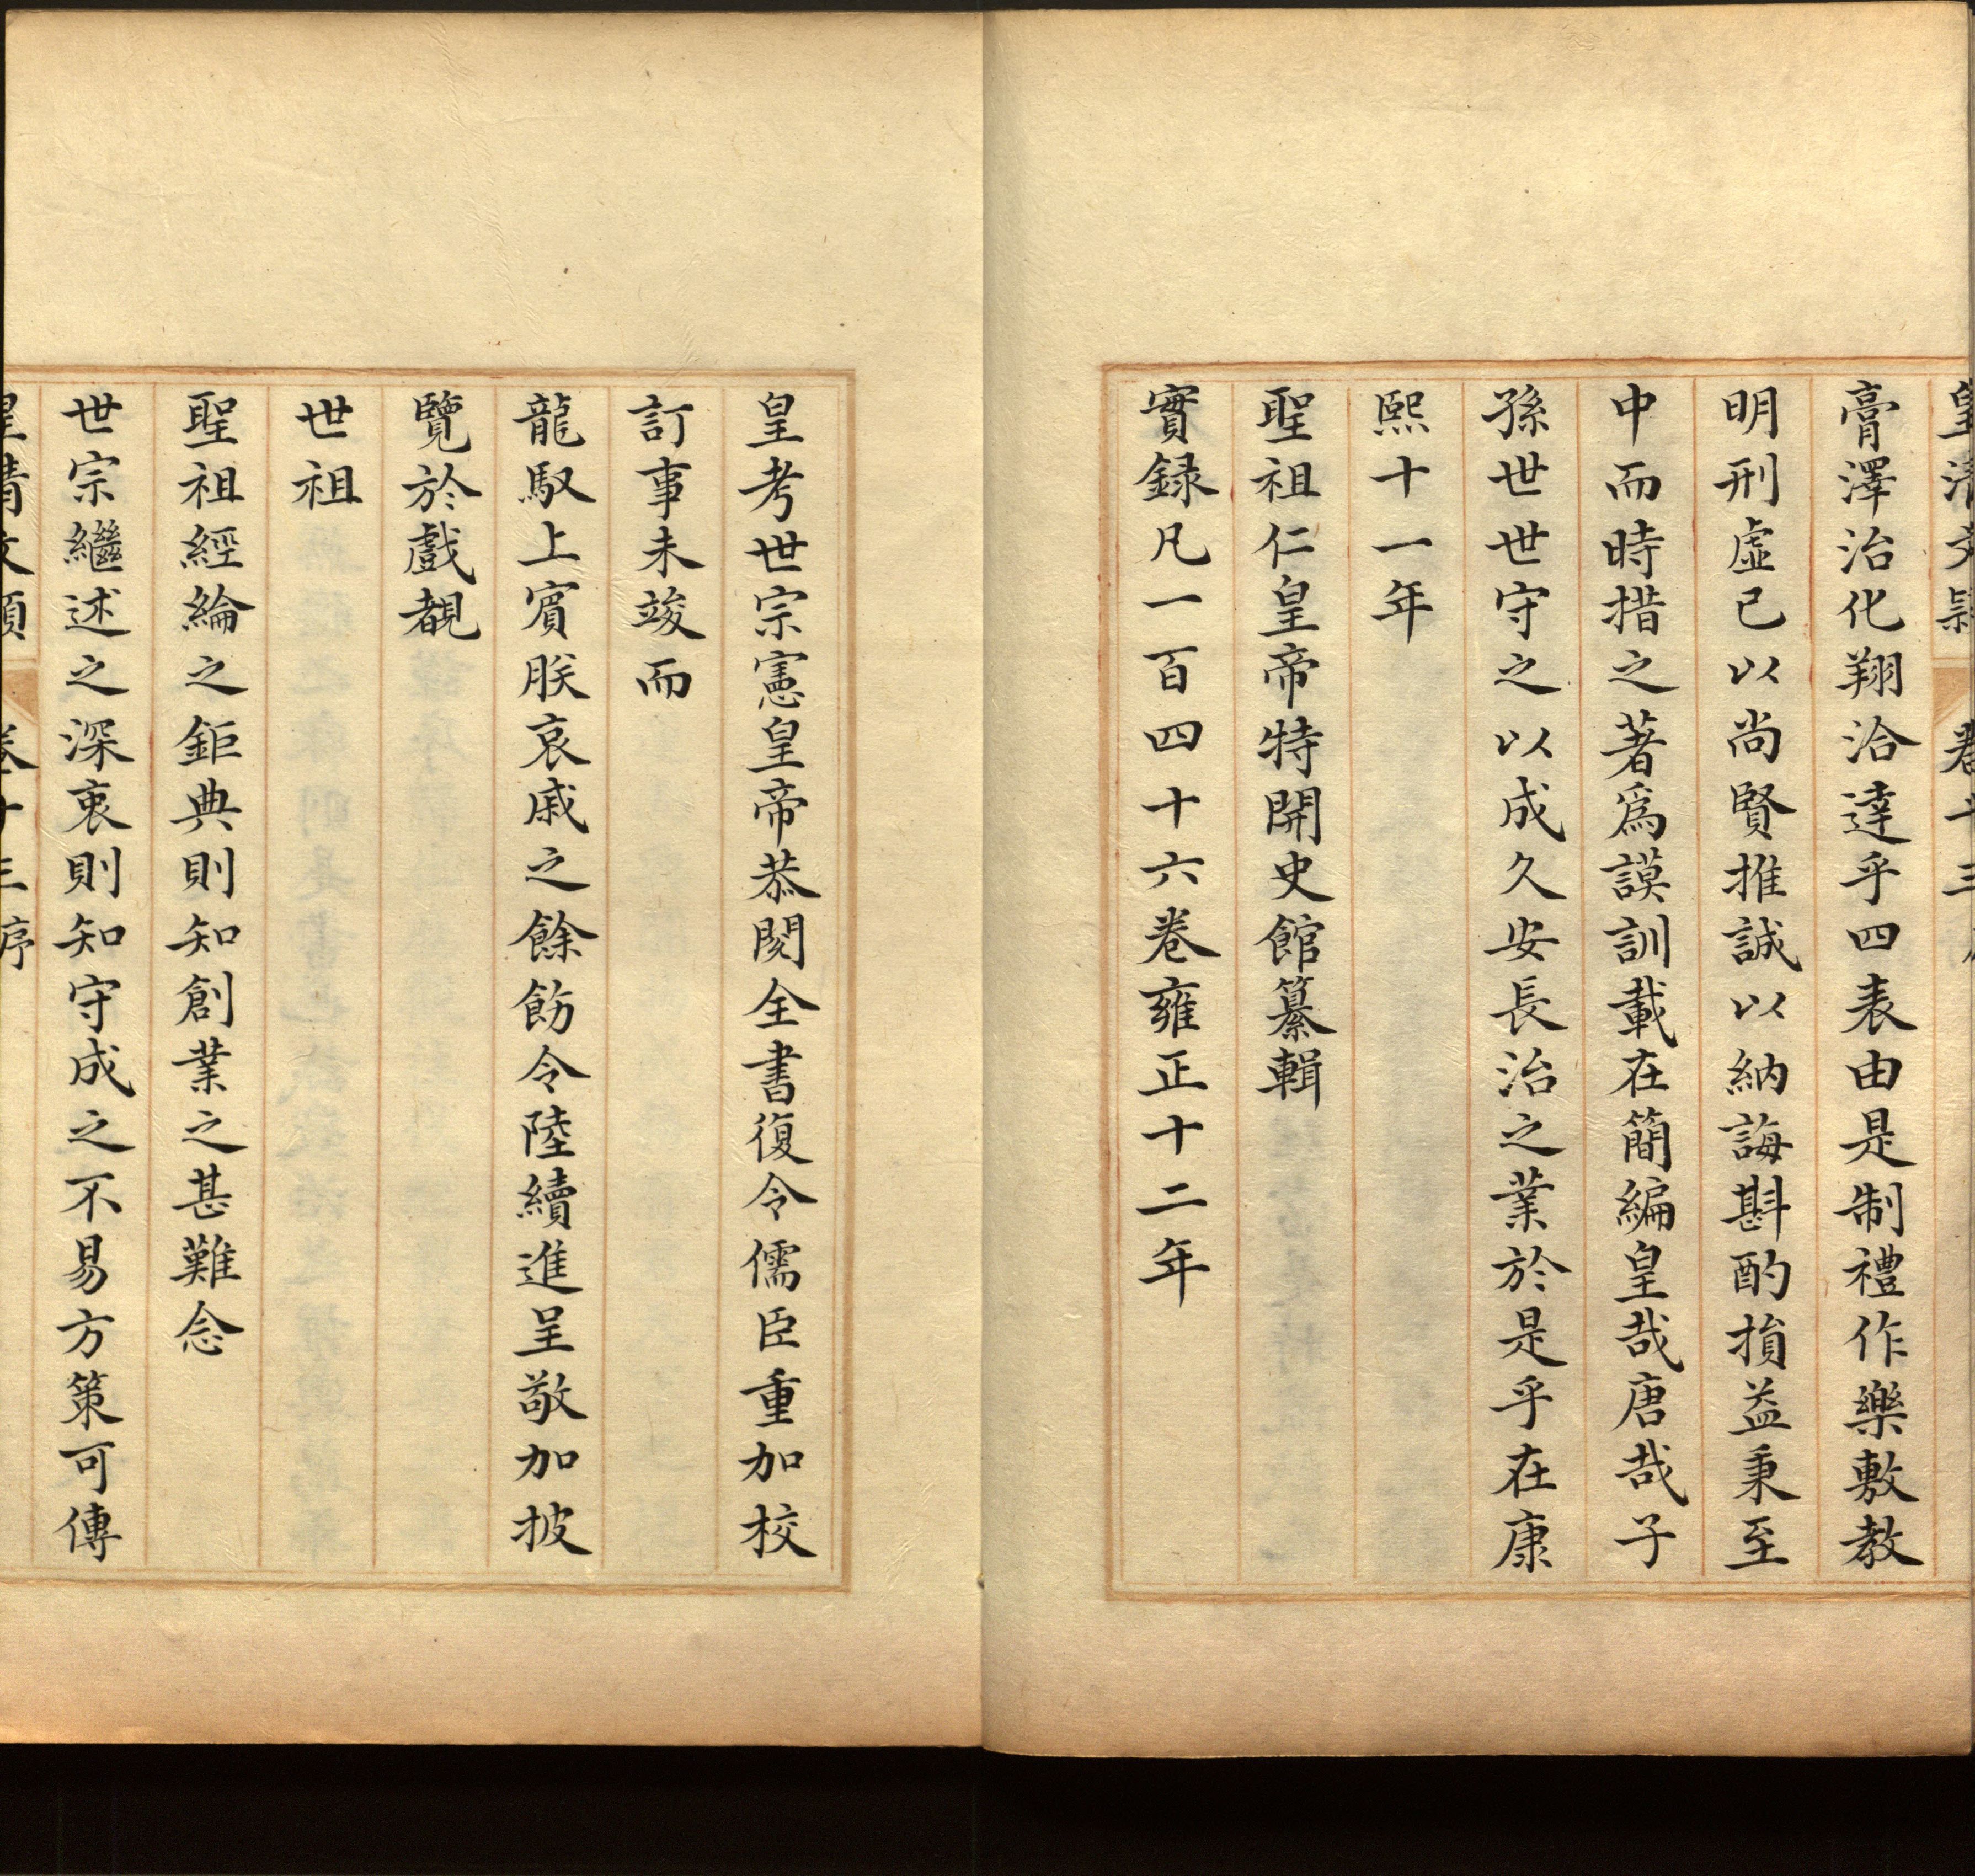 皇清文穎 卷十三
膏澤治化翔洽達乎四表由是制禮作樂敷教
明刑虛已以尚賢推誠以納誨斟酌損益秉至
中而時措之著爲謨訓載在簡編皇哉唐哉子
孫世世守之以成久安長治之業於是乎在康
熙十一年
聖祖仁皇帝特開史館纂輯
實録凡一百四十六卷雍正十二年
皇考世宗憲皇帝恭閱全書復令儒臣重加校
訂事未竣而
龍馭上賓朕哀戚之餘飭令陸續進呈敬加披
覽於戲覩
世祖
聖祖經綸之鉅典則知創業之甚難念
世宗繼述之深衷則知守成之不易方策可傳
皇清文穎 卷十三序